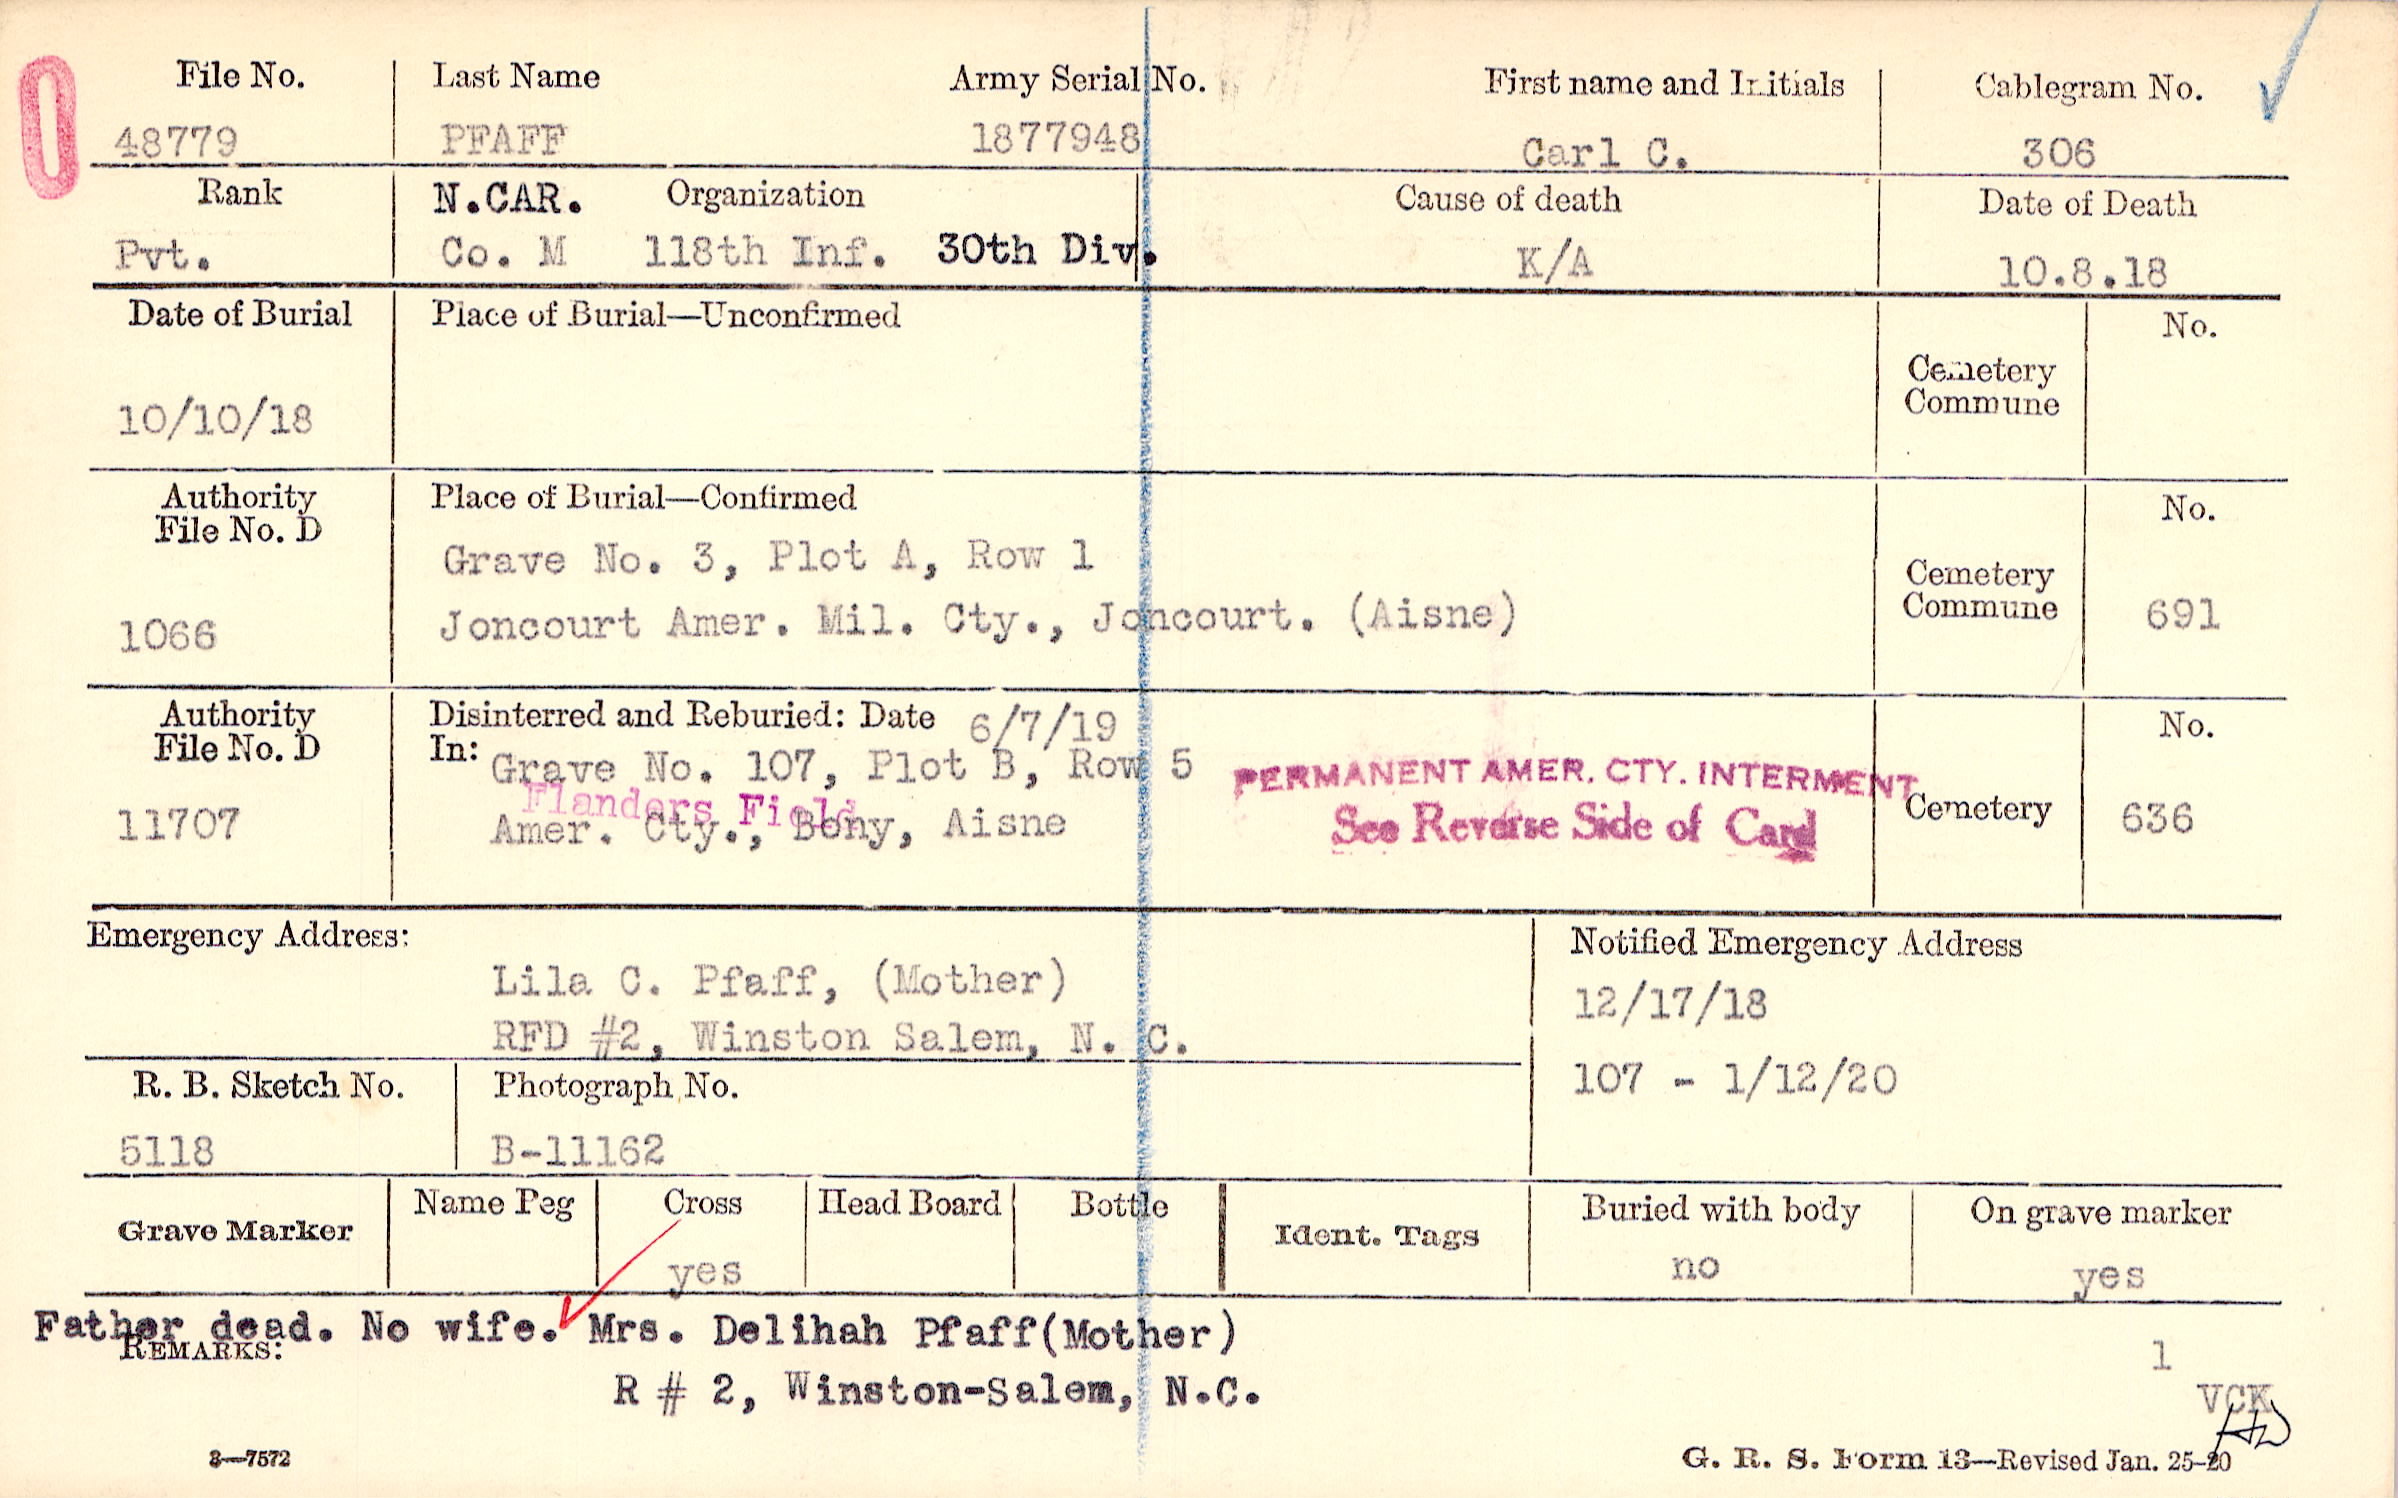 File No. Last Name Army Serial No. First name and Initials Cablegram No.
48779 PFAFF 1877948 Carl C. 306
Rank N.CAR. Organization Cause of death Date of Death
Pvt. Co. M 118th Inf. 30th Div. K/A 10.8.18
Date of Burial Place of Burial—Unconfirmed No.
Cemetery
Commune
10/10/18
Authority Place of Burial—Confirmed No.
File No. D
Grave No. 3, Plot A, Row 1
Cemetery
Commune 691
1066 Joncourt Amer. Mil. Cty., Joncourt. (Aisne)
Authority Disinterred and Reburied: Date 6/7/19 No.
File No. D In: Grave No. 107, Plot B, Row 5
PERMANENT AMER. CTY. INTERMENT
Flanders Field
11707 Amer. Cty., Bony, Aisne See Reverse Side of Card Cemetery 636
Emergency Address: Notified Emergency Address
Lila C. Pfaff, (Mother) 12/17/18
RFD #2, Winston Salem, N. C.
R. B. Sketch No. Photograph No. 107 - 1/12/20
5118 B-11162
Grave Marker Name Peg Cross Head Board Bottle Ident. Tags Buried with body On grave marker
yes no yes
Father dead. No wife. Mrs. Delihah Pfaff(Mother)
REMARKS: 1
R # 2, Winston-Salem, N.C. VCK
3—7572 G. R. S. Form 13—Revised Jan. 25-20